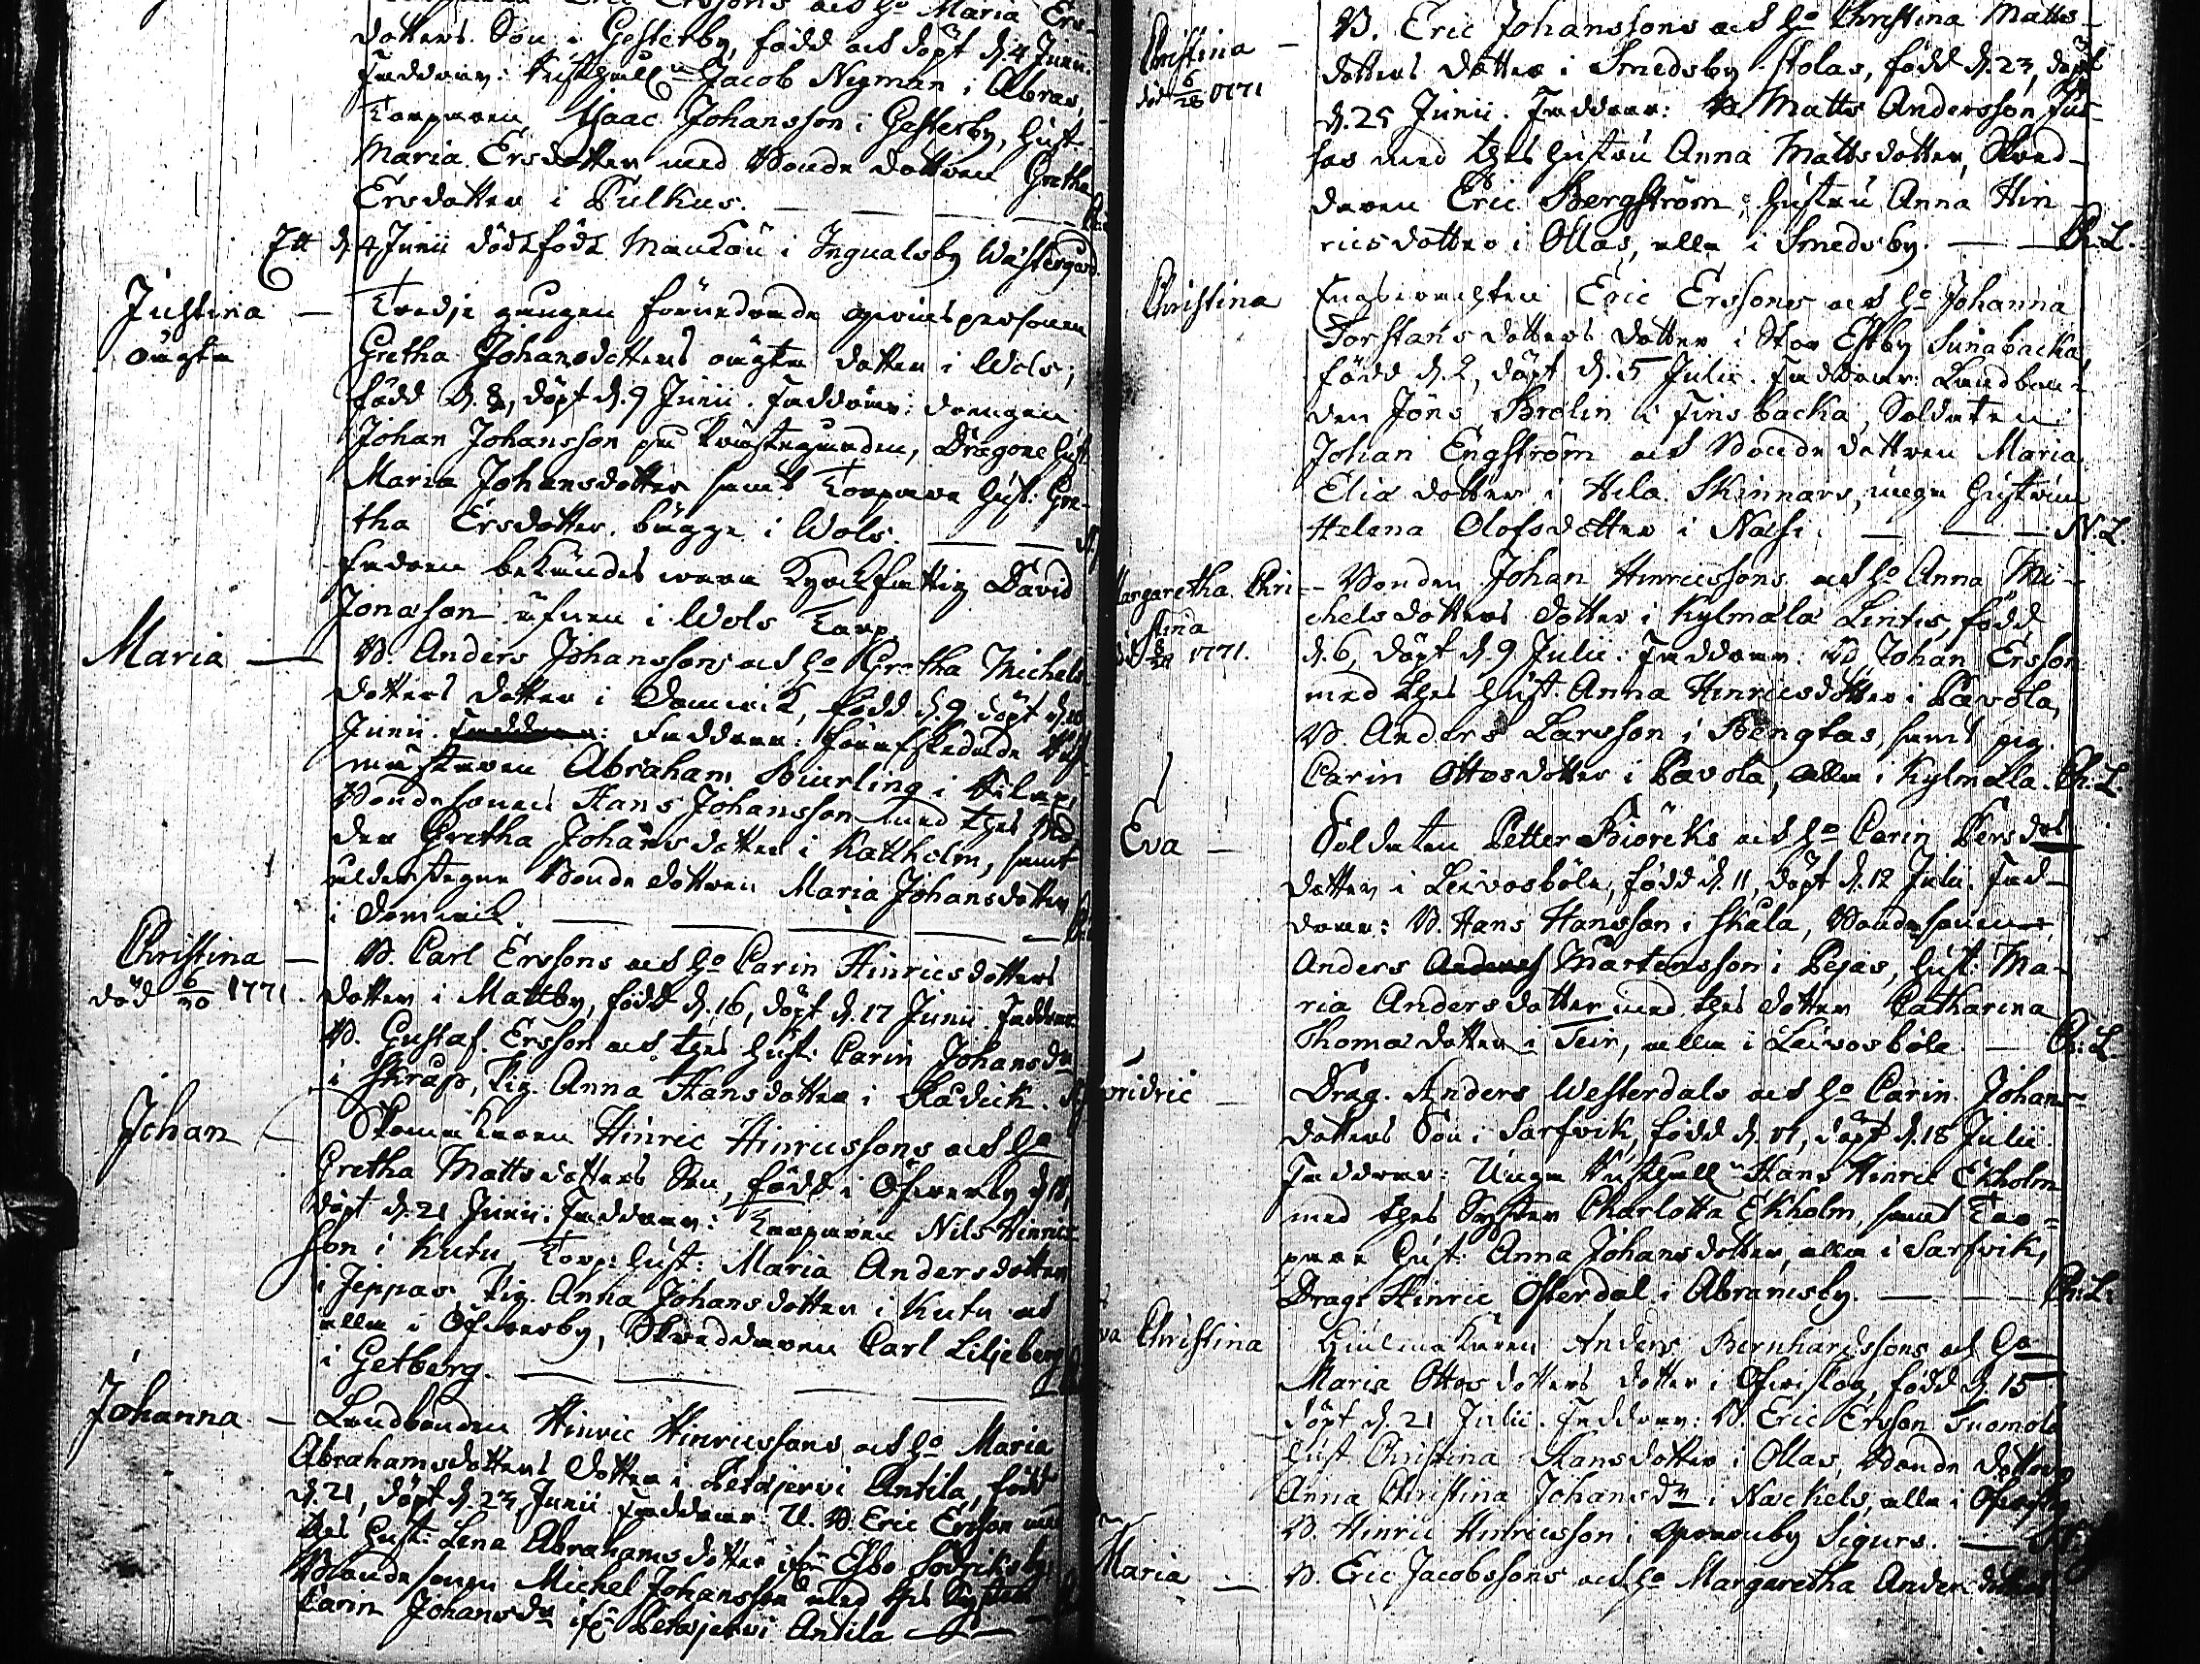 Eric Ersons och ho Maria Ers-
dotters Son i Gesterby, född och döpt d. 4 Junii.
Faddrar: Jacob Nyman i Abras,
Torparen Isaac Johansson i Gesterby, Hust.
Maria Ersdotter med Bonde dottren Gretha
Ersdotter i Pulkus.
Ett d. 4 Junii dödfödt Mankön i Ingvalsby Westergård.
Justina
oägta
Tredje gången förnedrade qvinspersonen
Gretha Johansdotters oägta dotter i Wols;
född d. 8, döpt d. 9 Junii. Faddrar: drängen
Johan Johansson på Prästegården, Dragone Hust.
Maria Johansdotter samt Torpare Hust. Gre-
tha Ersdotter, bägge i Wols.
Fadren bekändes vara David
Jonasson i Wols Torp.
Maria
B. Anders Johanssons och ho Gretha Michels-
dotters dotter i Domvik, född d. 9 döpt d. 10
Junii. Faddrar: Faddrar: förafskedade
mästaren Abraham Biurling i
Bondesonen Hans Johansson med thes Mo-
der Gretha Johansdotter i Kattholm, samt
Bonde dottren Maria Johansdotter
i Domvik.
Christina
död 6/20 1771.
B. Carl Erssons och ho Carin Hinricsdotters
dotter i Mattby, född d. 16, döpt d. 17 Junii. Faddrar
B. Gustaf Ersson och thes Hust. Carin Johansdr
i Skrap, Pig. Anna Hansdotter i
Johan
Skomakaren Hinric Hinricssons och ho
Gretha Mattsdotters Son, född i Öfverby d. 18,
döpt d. 21 Junii. Faddrar: Torparen Nils Hinrics-
son i Kutu, Torp. Hust: Maria Andersdotter
i Jeppas, Pig. Anna Johansdotter i Kutu och
alla i Öfverby, Skreddaren Carl Liljeberg
i Getberg.
Johanna
Landbonden Hinric Hinricssons och ho Maria
Abrahamsdotters dotter i Petäjervi Antila, född
d. 21, döpt d. 23 Junii Faddrar: U. B. Eric Ersson med
thes Hust: Lena Abrahamsdotter ifr. Esbo Södriksby,
Bondesonen Michel Johansson med thes Syster
Carin Johansdr ifr. Petäjervi Antila
Christina
död 6/28 1771
B. Eric Johanssons och ho Christina Matts-
dotters dotter i Smedsby Stolas, född d. 23, döpt
d. 25 Junii. Faddrar: B. Matts Andersson
med thes hustru Anna Mattsdotter, Skred-
daren Eric Bergström, hustru Anna Hin-
ricsdotter i Ollas, alla i Smedsby. Ch. L.
Christina
Eric Erssons och ho Johanna
Torstansdotters dotter i Stor Estby Sunabacka,
född d. 2, döpt d. 5 Julii. Faddrar: Landbon-
den Jöns Brolin i Finsbacka, Soldaten
Johan Engström och Bonde dottren Maria
Eliædotter i Hila Skinnars, unga hustrun
Helena Olofsdotter i Nässi. N. L.
Margaretha Chri-
stina
död 1771.
Bonden Johan Hinricssons och ho Anna Mi-
chelsdotters dotter i Kylmäla Lintis, född
d. 6, döpt d. 9 Julii: Faddrar: Johan Ersson
med thes Hust. Anna Hinricsdotter i Pavola,
B. Anders Larsson i Bengtas, samt pig.
Carin Ottosdotter i Pavola, alla i Kylmäla. Ch. L.
Eva
Soldaten Petter Biörcks och ho Carin Persdrs
dotter i Leivosböle, född d. 11, döpt d. 12 Julii. Fad-
drar: B. Hans Hansson i Skala, Bondesonen
Anders Anders Mårtensson i Pejas, Hust: Ma-
ria Andersdotter med thes dotter Catharina
Thomædotter i Teir, alla i Leivosböle. Ch. L.
Fridric
Drag. Anders Westerdals och ho Carin Johans-
dotters Son i Sarfvik, född d. 17, döpt d. 18 Julii
Faddrar: Unga Hans Hinric Ekholm
med thes Syster Charlotta Ekholm, samt Tor-
pare Hust: Anna Johansdotter, alla i Sarfvik,
Drag. Hinric Österdal i Abramsby. Ch. L.
Eva Christina
Anders Bernhardssons och ho
Maria Ottosdotters dotter i Öfvitskog, född d. 15
döpt d. 21 Julii. Faddrar: B. Eric Ersson Tuomola
Hust. Christina Hansdotter i Ollas, Bonde dottern
Anna Christina Johansdr i Nackels, alla i
B. Hinric Hinricsson i Sigurs.
Maria
B. Eric Jacobssons och ho Margaretha Andersdotters